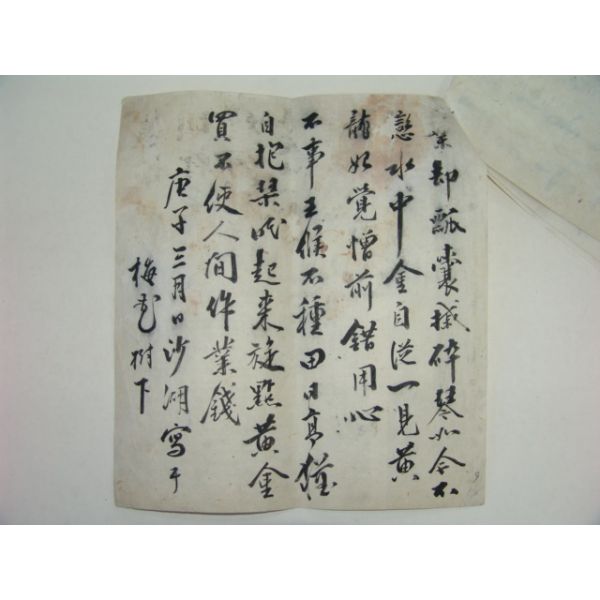 棄却瓢囊摵碎琴如今不
戀水中金自從一見黃
龍始覺憎前錯用心
不事王候不種田日高猶
自抱琴眠起来旋點黃金
買不使人間作業錢
庚子三月日沙湖寫于
梅花樹下